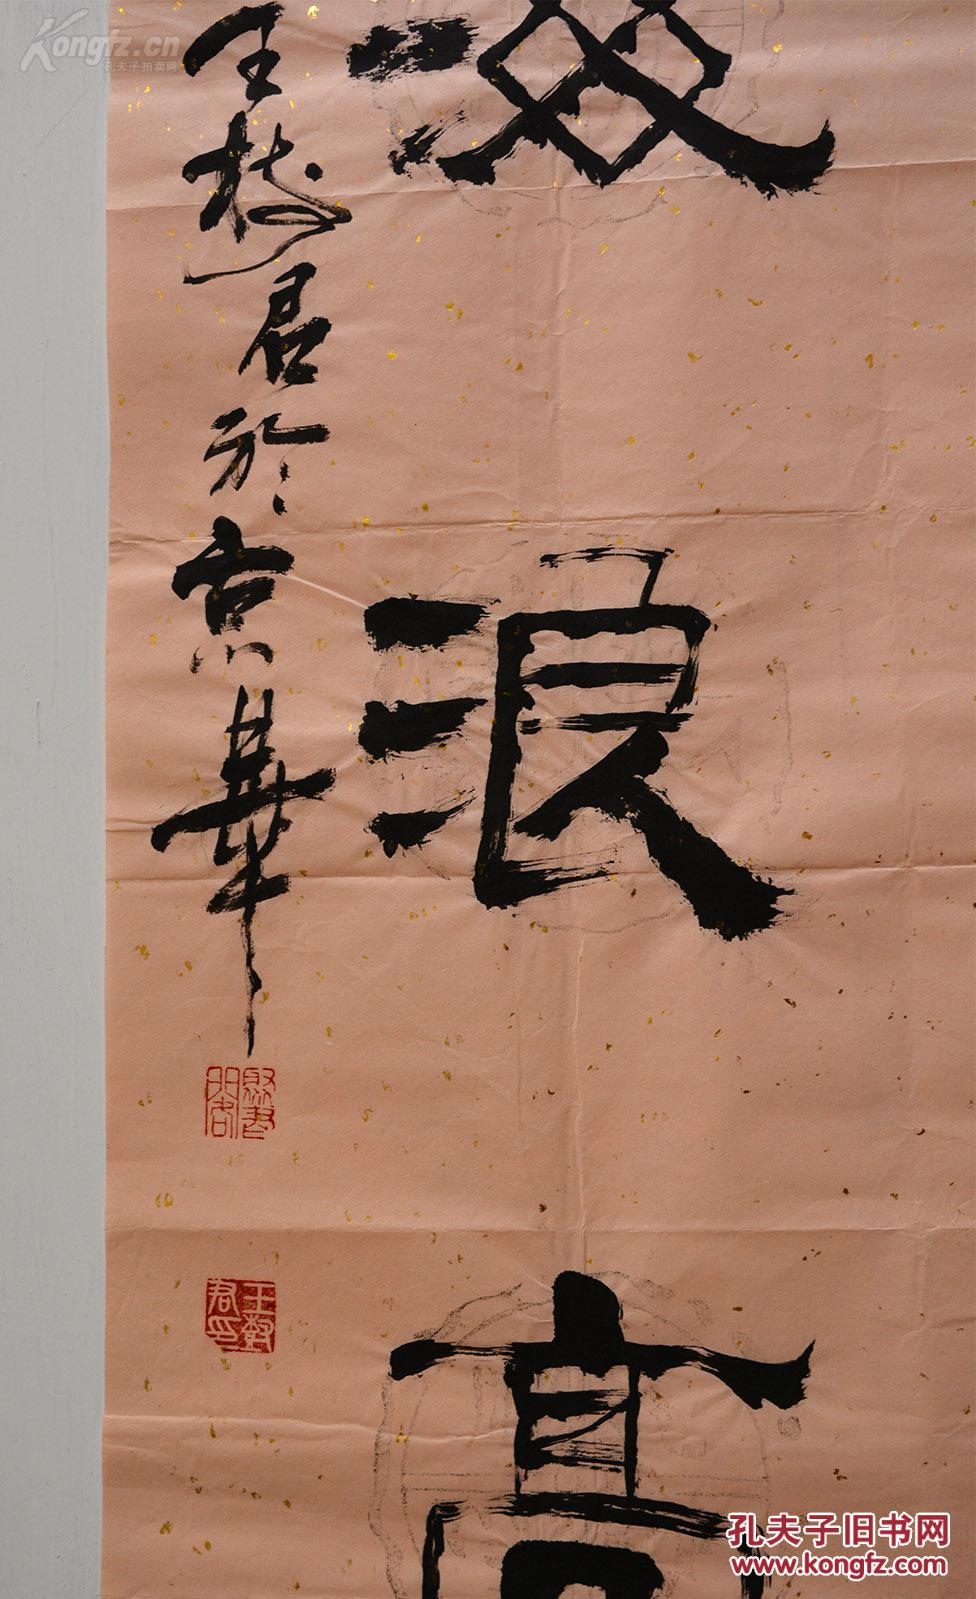 浪高
王树君於京華
王樹君印
Kongfz.cn
孔夫子拍卖网
孔夫子旧书网
www.kongfz.com